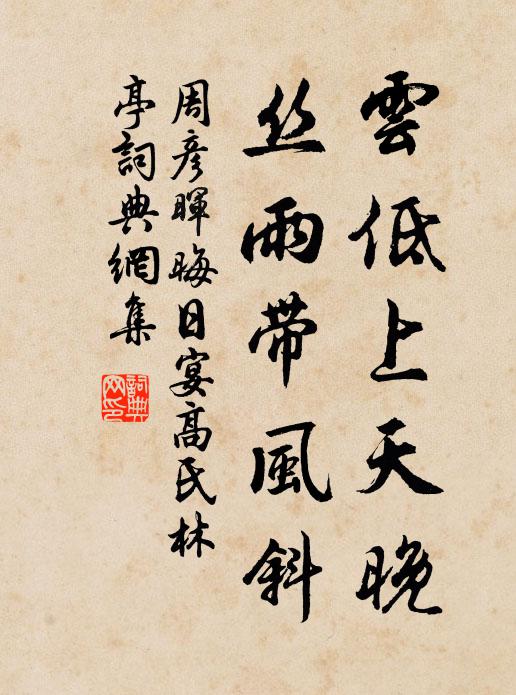 雲低上天晚
丝雨带風斜
周彦暉晦日宴高氏林
亭詞典網集
詞典
网印